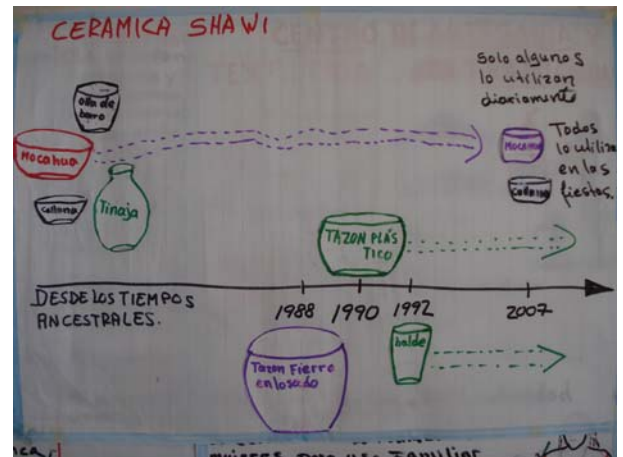 CERAMICA SHAWI
Solo algunos
lo utilizan
diariament
olla de
barro
Mocahua
MOCAHUA
Todos
lo utiliza
en las
fiestas.
callana
Tinaja
TAZON PLÁS
TICO
DESDE LOS TIEMPOS
ANCESTRALES.
1988
1990
1992
2007
Tazon Fierro
enlosado
balde